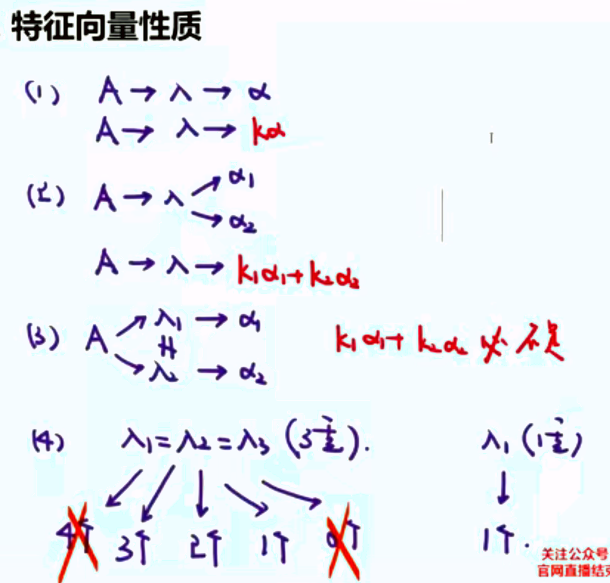 特征向量性质
(1) A → λ → α
A → λ → kα
(2) A → λ → α₁
→ α₂
A → λ → k₁α₁+k₂α₂
(3) A → λ₁ → α₁
≠
→ λ₂ → α₂
k₁α₁+k₂α₂ 必不是
(4) λ₁=λ₂=λ₃ (3重). λ₁ (1重)
4个 3个 2个 1个 0个 1个.
关注公众号
官网直播结束